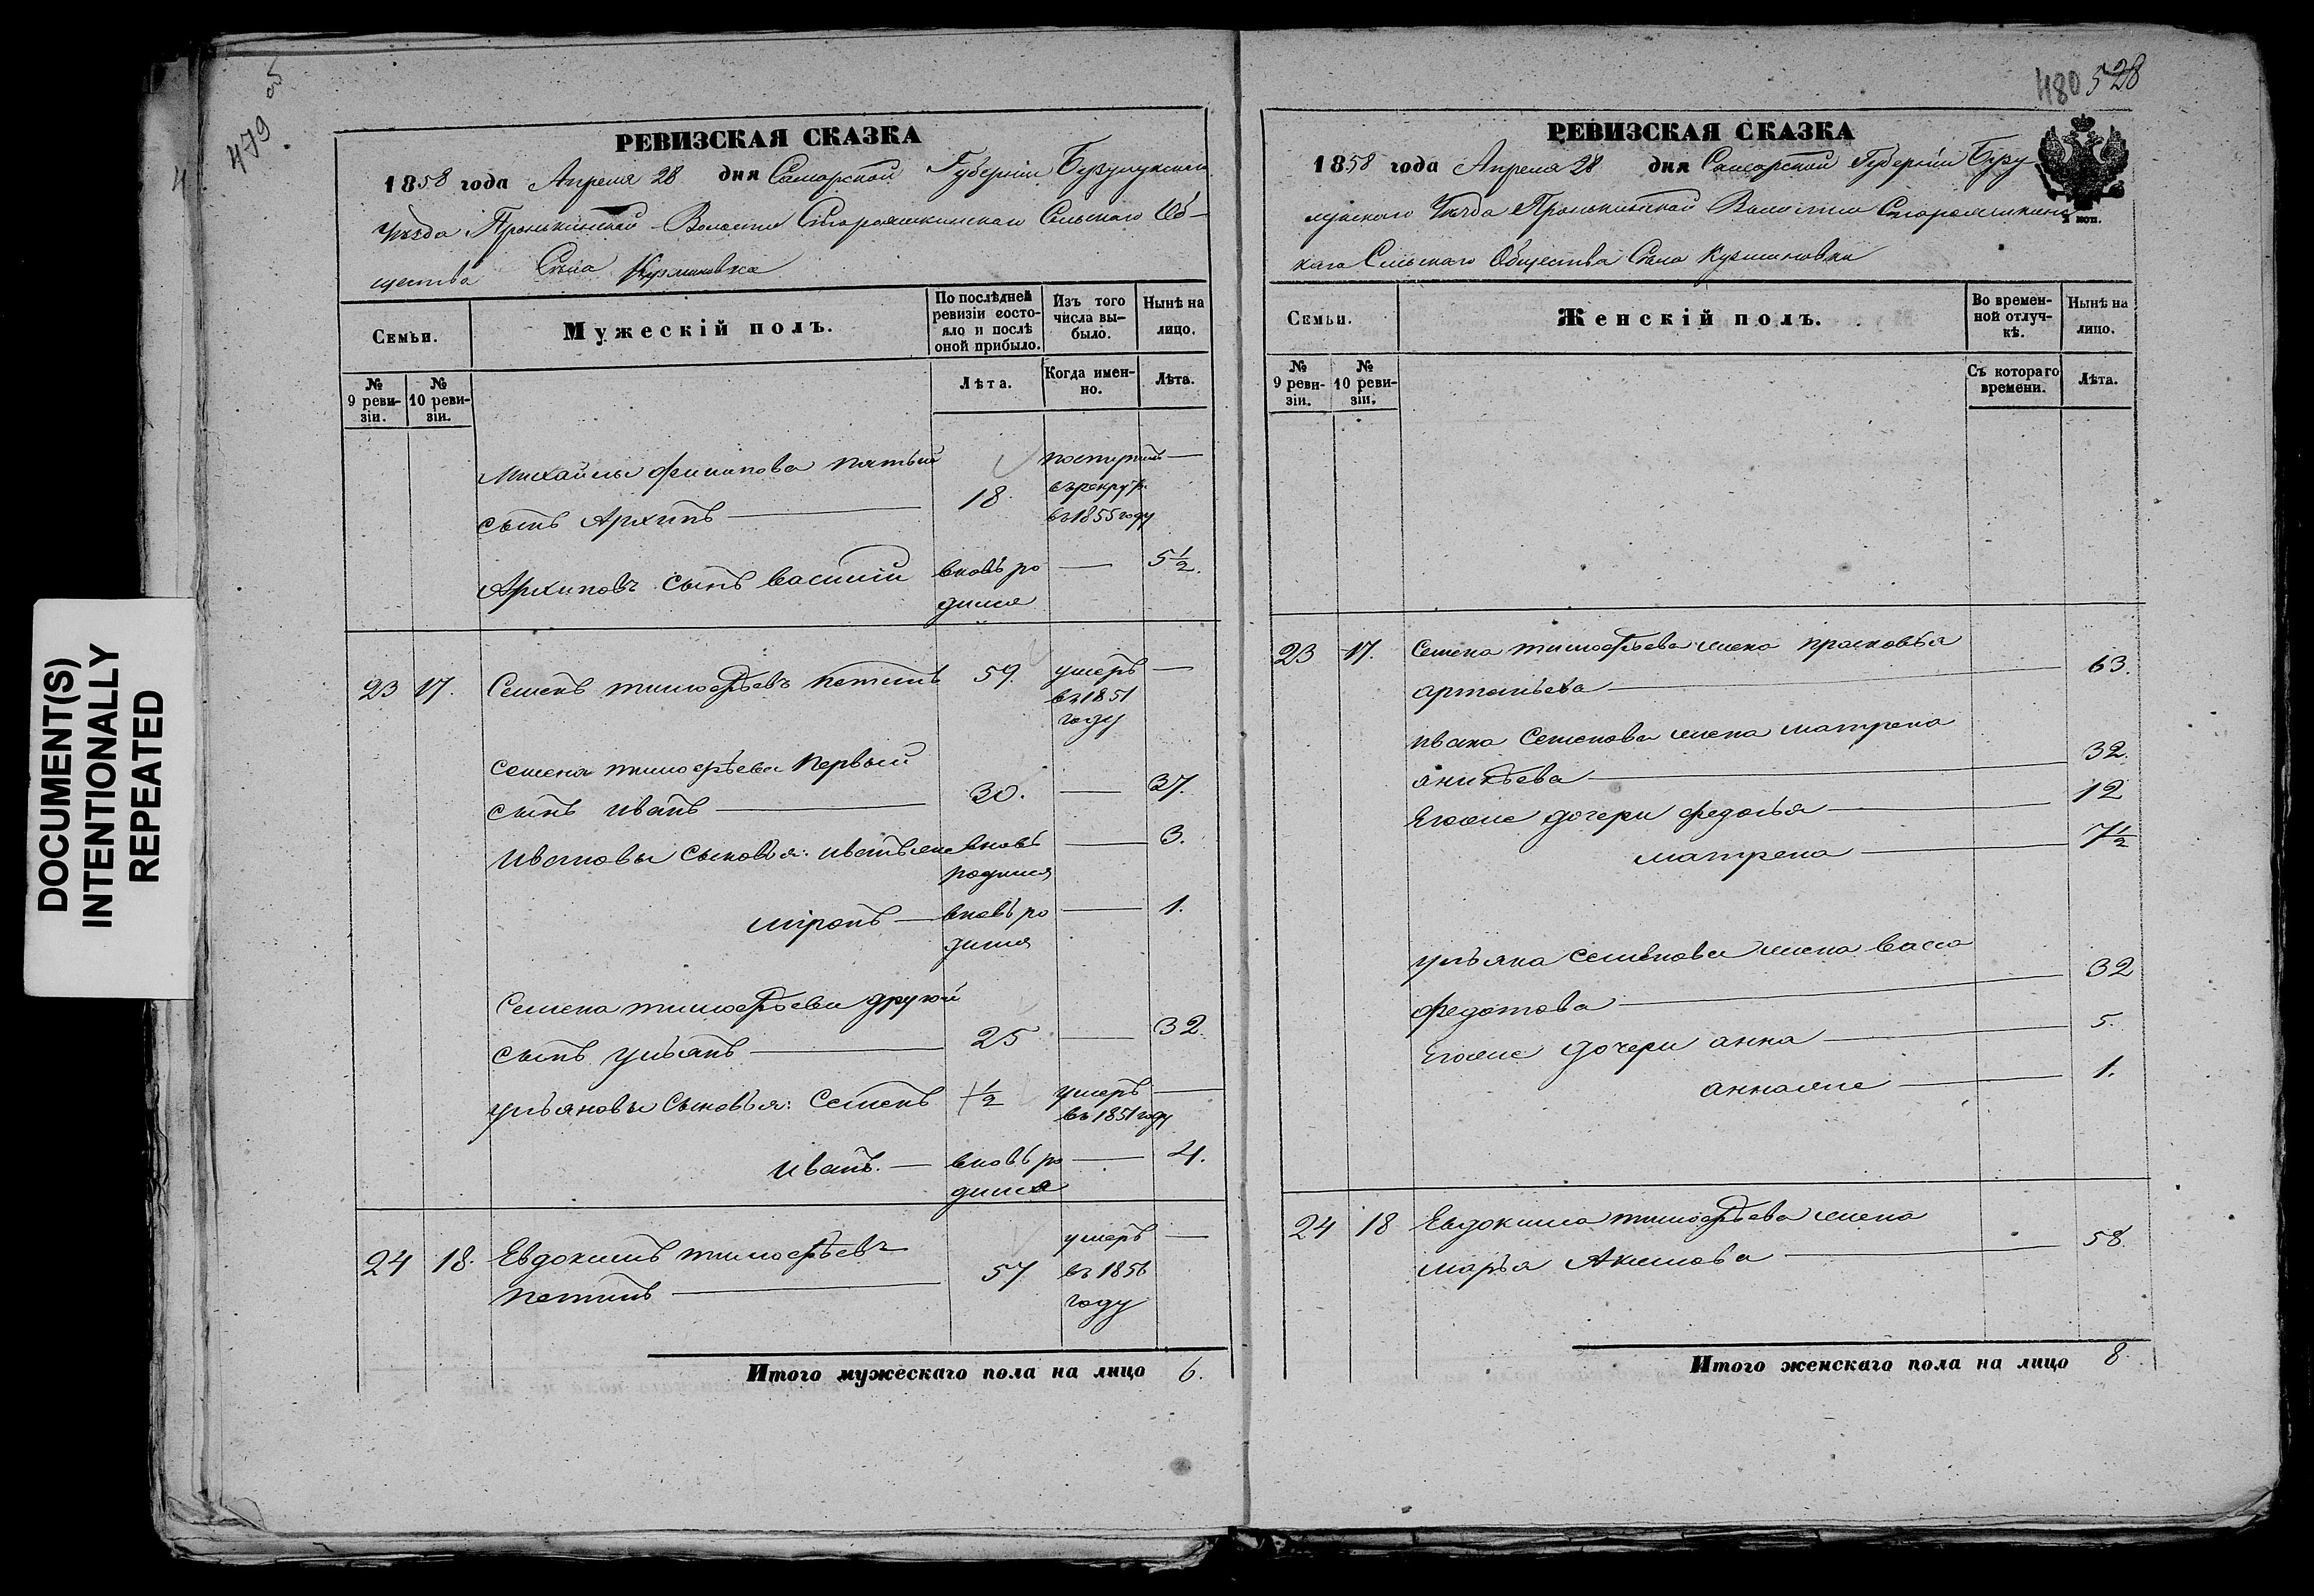 DOCUMENT(S)
INTENTIONALLY
REPEATED
479
РЕВИЗСКАЯ СКАЗКА
1858 года Апреля 28 дня Самарской Губернiи Бузулукскаго
Уѣзда Пронькинской Волости Старояшкинскаго Сельскаго Об-
щества Села Кузминовка
Семьи.
Мужескiй полъ.
По послѣдней ревизiи состояло и послѣ оной прибыло.
Изъ того числа выбыло.
Нынѣ на лицо.
№ 9 ревизiи.
№ 10 ревизiи.
Лѣта.
Когда именно.
Лѣта.
Михайлы Филипова пятый поступилъ —
сынъ Архипъ — 18. въ рекруты
въ 1855 году
Архиповъ сынъ Василiй вновь ро — 5½.
дился
23 17. Семенъ Тимофѣевъ 59. умеръ —
въ 1851
году
Семена Тимофѣева первый
сынъ Иванъ — 30. — 37.
Ивановы сыновья: Иванъ же вновь — 3.
родился
Миронъ — вновь ро — 1.
дился
Семена Тимофѣева другой
сынъ Ульянъ — 25 — 32.
Ульяновы сыновья: Семенъ ½ умеръ —
въ 1851 году
Иванъ. — вновь ро — 4.
дился
24 18. Евдокимъ Тимофѣевъ умеръ —
— 57 въ 1856
году
Итого мужескаго пола на лицо 6.
480 528
РЕВИЗСКАЯ СКАЗКА
1858 года Апреля 28 дня Самарской Губернiи Бузу
лукскаго Уѣзда Пронькинской Волости Старояшкинс
каго Сельскаго Общества Села Кузминовки
Семьи.
Женскiй полъ.
Во временной отлучкѣ.
Нынѣ на лицо.
№ 9 ревизiи.
№ 10 ревизiи.
Съ котораго времени.
Лѣта.
23 17. Семена Тимофѣева жена Прасковья
— 63.
Ивана Семенова жена Матрена
Аникѣева — 32.
Егоже дочери Федосья — 12
Матрена — 7½
Ульяна Семенова жена Васса
Федотова — 32
Егоже дочери Анна — 5.
Анна же — 1.
24 18 Евдокима Тимофѣева жена
Марья Акимова — 58.
Итого женскаго пола на лицо 8.